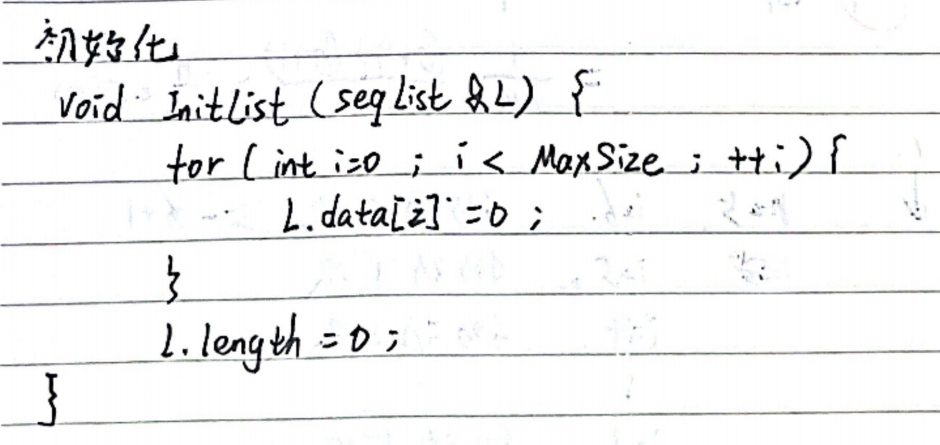 初始化
void InitList (seqList &L) {
for ( int i=0 ; i < MaxSize ; ++i) {
L.data[i] = 0 ;
}
L.length = 0 ;
}